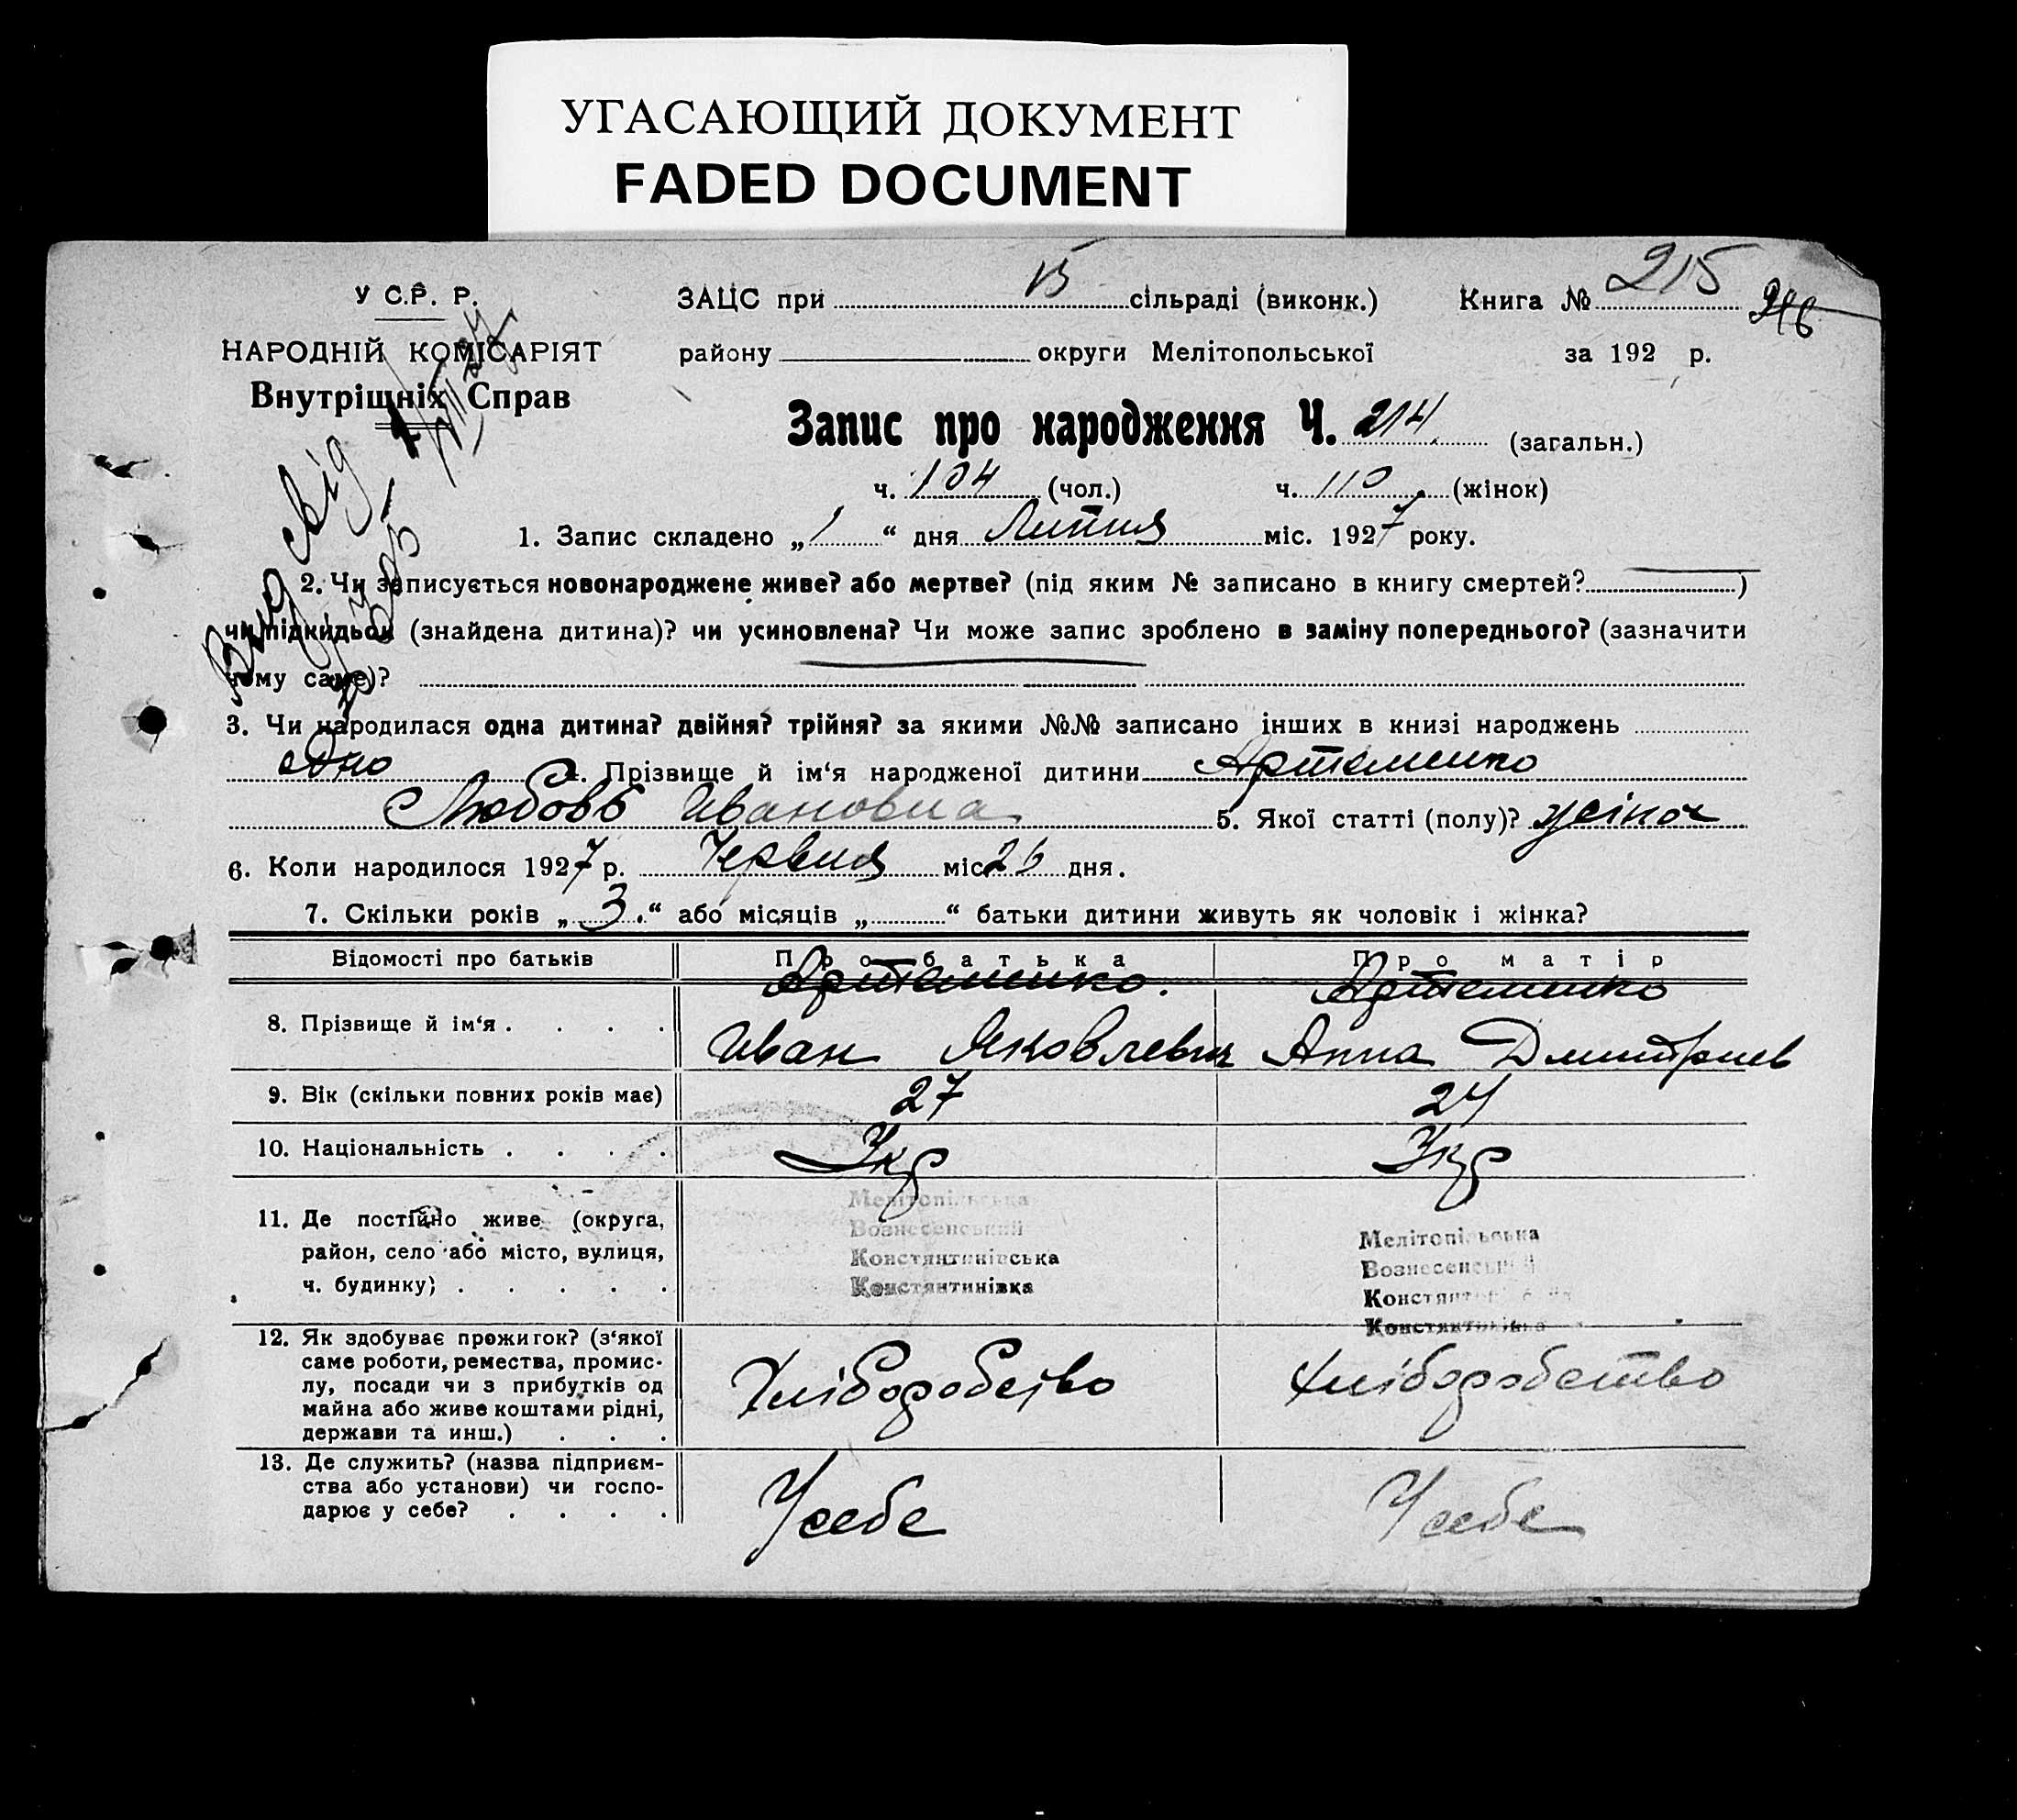 УГАСАЮЩИЙ ДОКУМЕНТ
FADED DOCUMENT
У С.Р. Р.
НАРОДНІЙ КОМІСАРІЯТ
Внутрішніх Справ
ЗАЦС при сільраді (виконк.) Книга № 215
216
району округи Мелітопольської за 192 р.
Запис про народження Ч. 214 (загальн.)
ч. 104 (чол.) ч. 110 (жінок)
1. Запис складено „ 1 “ дня Липня міс. 1927 року.
2. Чи записується новонароджене живе? або мертве? (під яким № записано в книгу смертей? )
чи підкидьок (знайдена дитина)? чи усиновлена? Чи може запис зроблено в заміну попереднього? (зазначити
чому саме)?
3. Чи народилася одна дитина? двійня? трійня? за якими №№ записано інших в книзі народжень
Одно 4. Прізвище й ім‘я народженої дитини Артеменко
Любовь Ивановна 5. Якої статті (полу)? жіноч
6. Коли народилося 1927 р. Червня міс 26 дня.
7. Скільки років „ 3. “ або місяців „ “ батьки дитини живуть як чоловік і жінка?
Відомості про батьків Про батька Про матір
Артеменко. Артеменко
8. Прізвище й ім‘я . . . . Иван Яковлевич Анна Дмитриев
9. Вік (скільки повних років має) 27 24
10. Національність . . . . Укр Укр
11. Де постійно живе (округа,
район, село або місто, вулиця,
ч. будинку) . . . . .
Мелітопільська
Вознесенський
Констянтинівська
Констянтинівка
Мелітопільська
Вознесенський
Констянтинівка
12. Як здобуває прожиток? (з‘якої
саме роботи, ремества, промис-
лу, посади чи з прибутків од
майна або живе коштами рідні,
держави та инш.) . . .
Хліборобство Хліборобство
13. Де служить? (назва підприєм-
ства або установи) чи госпо-
дарює у себе? . . . .
У себе У себе